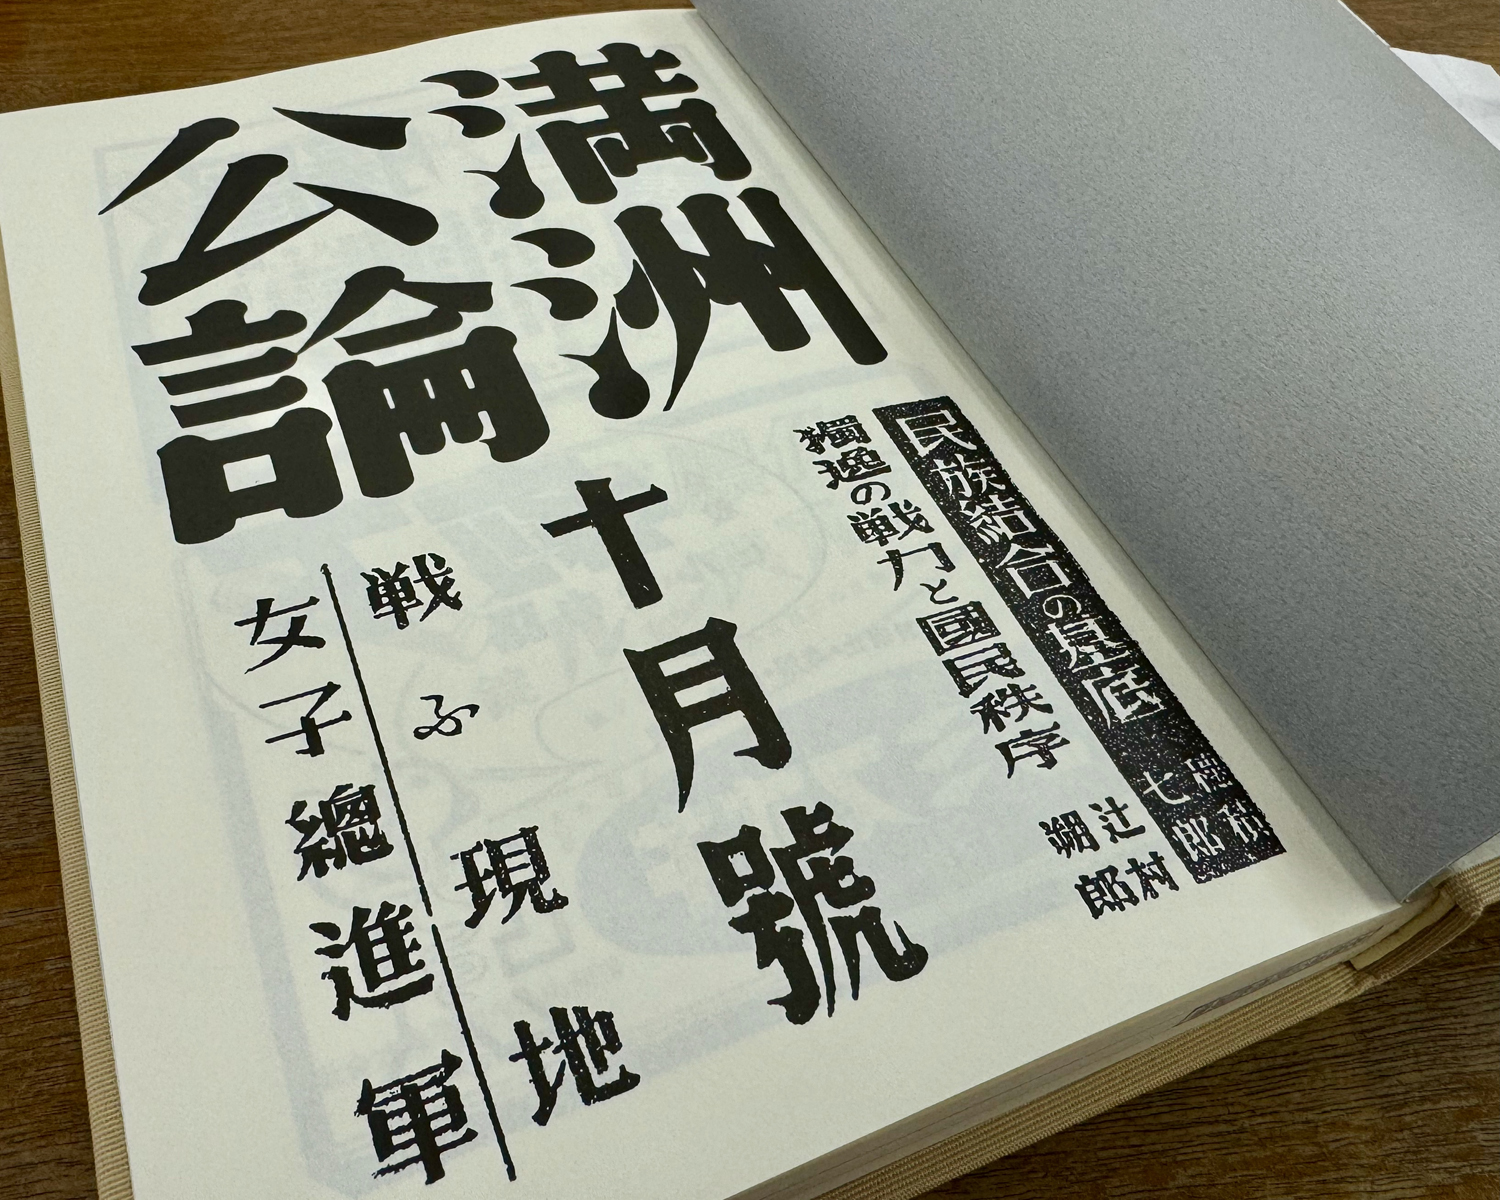 満洲
公論
民族結合の基底
穂積
七郎
獨逸の戦力と國民秩序
辻村
朔郎
十月號
戦ふ現地
女子總進軍